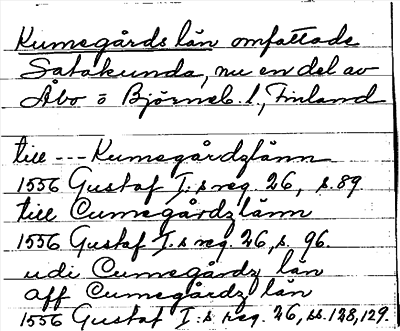 Kumegårds län omfattade
Satakunda, nu en del av
Åbo o Björneb. l., Finland
till --- Kumegårdzlänn
1556 Gustaf I:s reg. 26, s. 89
till Cumegårdzlänn
1556 Gustaf I:s reg. 26, s. 96.
udi Cumegårdz län
aff Cumegårdz län
1556 Gustaf I:s reg. 26, ss. 128, 129.